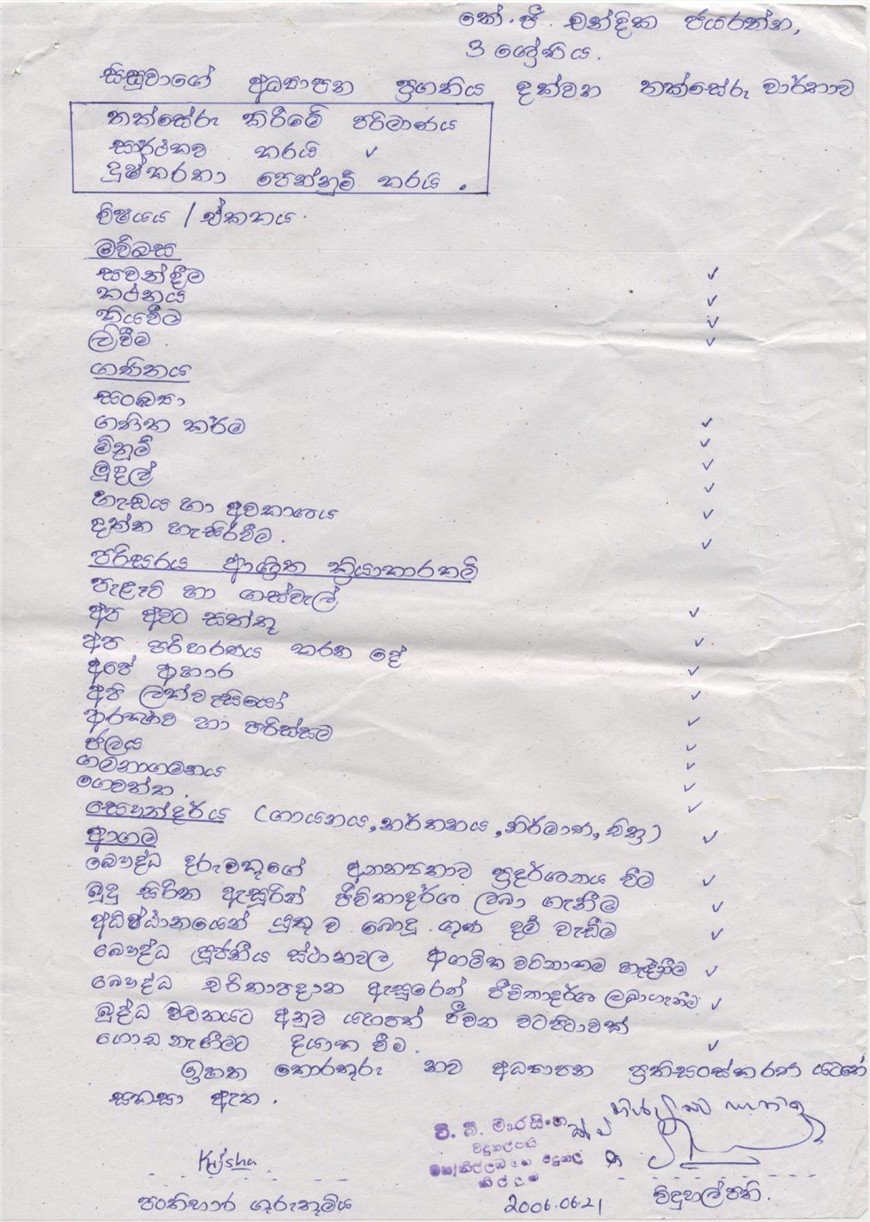 කේ. ජී. චන්දික ජයරත්න,
3 ශ්‍රේණිය.
සිසුවාගේ අධ්‍යාපන ප්‍රගතිය දක්වන තක්සේරු වාර්තාව
තක්සේරු කිරීමේ පරිමාණය
සාර්ථකව කරයි ✓
දුෂ්කරතා පෙන්නුම් කරයි.
විෂයය / ඒකකය.
මව්බස
සවන්දීම ✓
කථනය ✓
කියවීම ✓
ලිවීම. ✓
ගණිතය
සංඛ්‍යා
ගණිත කර්ම ✓
මිනුම් ✓
මුදල් ✓
හැඩය හා අවකාශය ✓
දත්ත හැසිරවීම. ✓
පරිසරය ආශ්‍රිත ක්‍රියාකාරකම් ✓
පැළෑටි හා ගස්වැල්
අප අවට සත්තු ✓
අප පරිහරණය කරන දේ ✓
අපේ ආහාර ✓
අපි ලක්වැසියෝ ✓
ආරක්ෂාව හා පරිස්සම ✓
ජලය ✓
ගමනාගමනය ✓
ගෙවත්ත. ✓
සෞන්දර්ය (ගායනය, නර්තනය, නිර්මාණ, චිත්‍ර) ✓
ආගම ✓
බෞද්ධ දරුවකුගේ අනන්‍යතාව ප්‍රදර්ශනය වීම ✓
බුදු සිරිත ඇසුරින් ජීවිතාදර්ශ ලබා ගැනීම ✓
අධිෂ්ඨානයෙන් යුතු ව බොදු ගුණ දම් වැඩීම ✓
බෞද්ධ පූජනීය ස්ථානවල ආගමික වටිනාකම හැඳිනීම ✓
බෞද්ධ චරිතාපදාන ඇසුරෙන් ජීවිතාදර්ශ ලබාගැනීම ✓
බුද්ධ වචනයට අනුව යහපත් ජීවන වටපිටාවක්
ගොඩ නැගීමට දියාන වීම. ✓
ඉහත තොරතුරු නව අධ්‍යාපන ප්‍රතිසංස්කරණ යටතේ
සකසා ඇත.
වී. බී. මාරසිංහ
විදුහල්පති
Krisha
පංතිභාර ගුරුතුමිය
2006.06.21
විදුහල්පති.